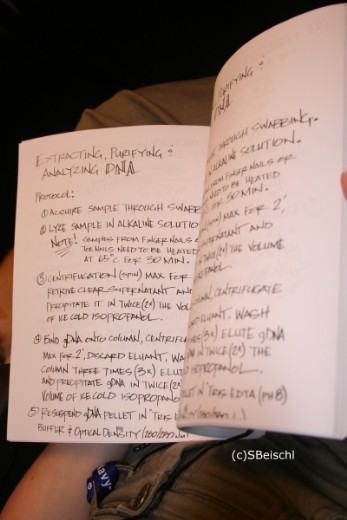 EXTRACTING, PURIFYING &
ANALYZING DNA
PROTOCOL:
① ACQUIRE SAMPLE THROUGH SWABB
② LYZE SAMPLE IN ALKALINE SOLUTIO
NOTE! SAMPLES FROM FINGER NAILS O
THE NAILS NEED TO BE HEATED
AT 65°C FOR 30 MIN.
③ CENTRIFUGATION (SPIN) MAX FOR
RETRIVE CLEAR SUPERNATANT AND
PRECIPITATE IT IN TWICE (2X) THE VOL
OF ICE COLD ISOPROPANOL.
④ BIND gDNA ONTO COLUMN, CENTRIFU
MAX FOR 2', DISCARD ELUANT, WA
COLUMN THREE TIMES (3X) ELUTE
AND PRECIPITATE gDNA IN TWICE (2X
VOLUME OF ICE COLD ISOPROPANO
⑤ RESUSPEND gDNA PELLET IN "TRIS E
BUFFER & OPTICAL DENSITY (260/
PURIFYING &
DNA
THROUGH SWABBING.
ALKALINE SOLUTION.
FROM FINGER NAILS OR
NEED TO BE HEATED
C FOR 30 MIN.
(SPIN) MAX FOR 2',
PERNATANT AND
TWICE (2X) THE VOLUME
PANOL.
UMN, CENTRIFUGATE
ARD ELUANT, WASH
MES (3X) ELUTE gDNA
NA IN TWICE (2X) THE
SOPROPANOL.
LLET IN "TRIS EDTA (pH 8)
(c)SBeischl
avy